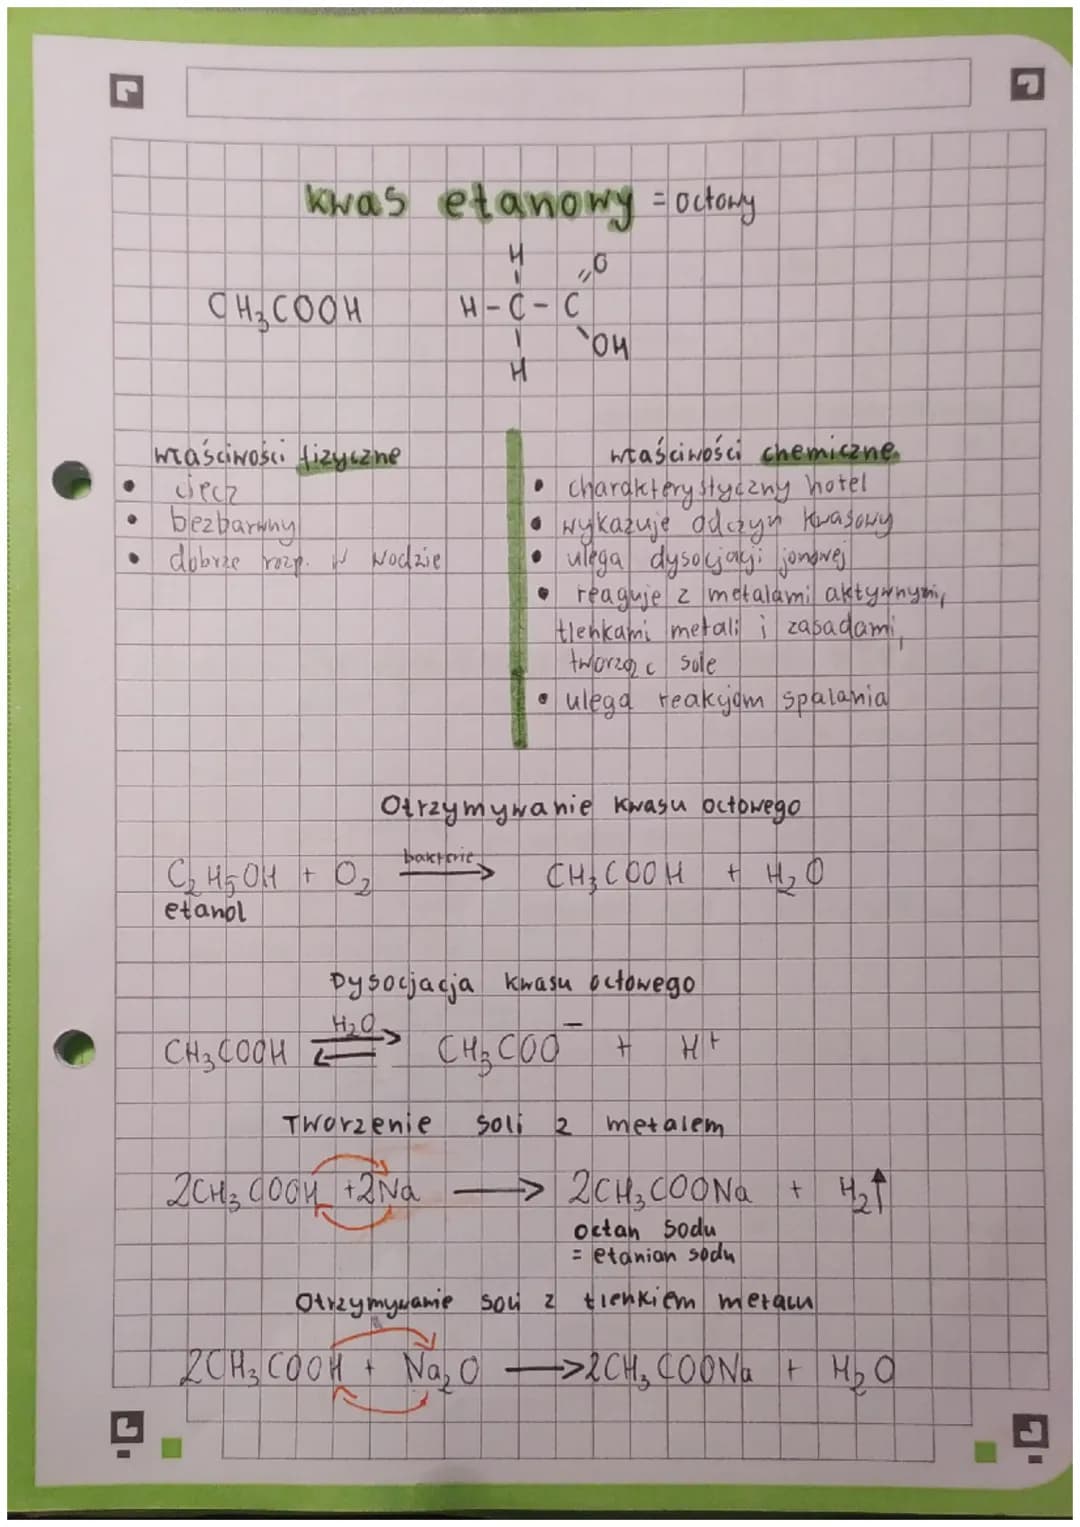 kwas etanowy = octowy
H
O
CH₃COOH H - C - C
OH
H
właściwości fizyczne
• ciecz
• bezbarwny
• dobrze rozp. w wodzie
właściwości chemiczne
• charakterystyczny hotel
• wykazuje odczyn kwasowy
• ulega dysocjacji jonowej
• reaguje z metalami aktywnymi,
tlenkami metali i zasadami,
tworząc sole
• ulega reakcjom spalania
Otrzymywanie kwasu octowego
C₂H₅OH + O₂ bakterie → CH₃COOH + H₂O
etanol
Dysocjacja kwasu octowego
CH₃COOH H₂O ⇄ CH₃COO⁻ + H⁺
Tworzenie soli z metalem
2CH₃COOH + 2Na → 2CH₃COONa + H₂↑
octan sodu
= etanian sodu
Otrzymywanie soli z tlenkiem metalu
2CH₃COOH + Na₂O → 2CH₃COONa + H₂O